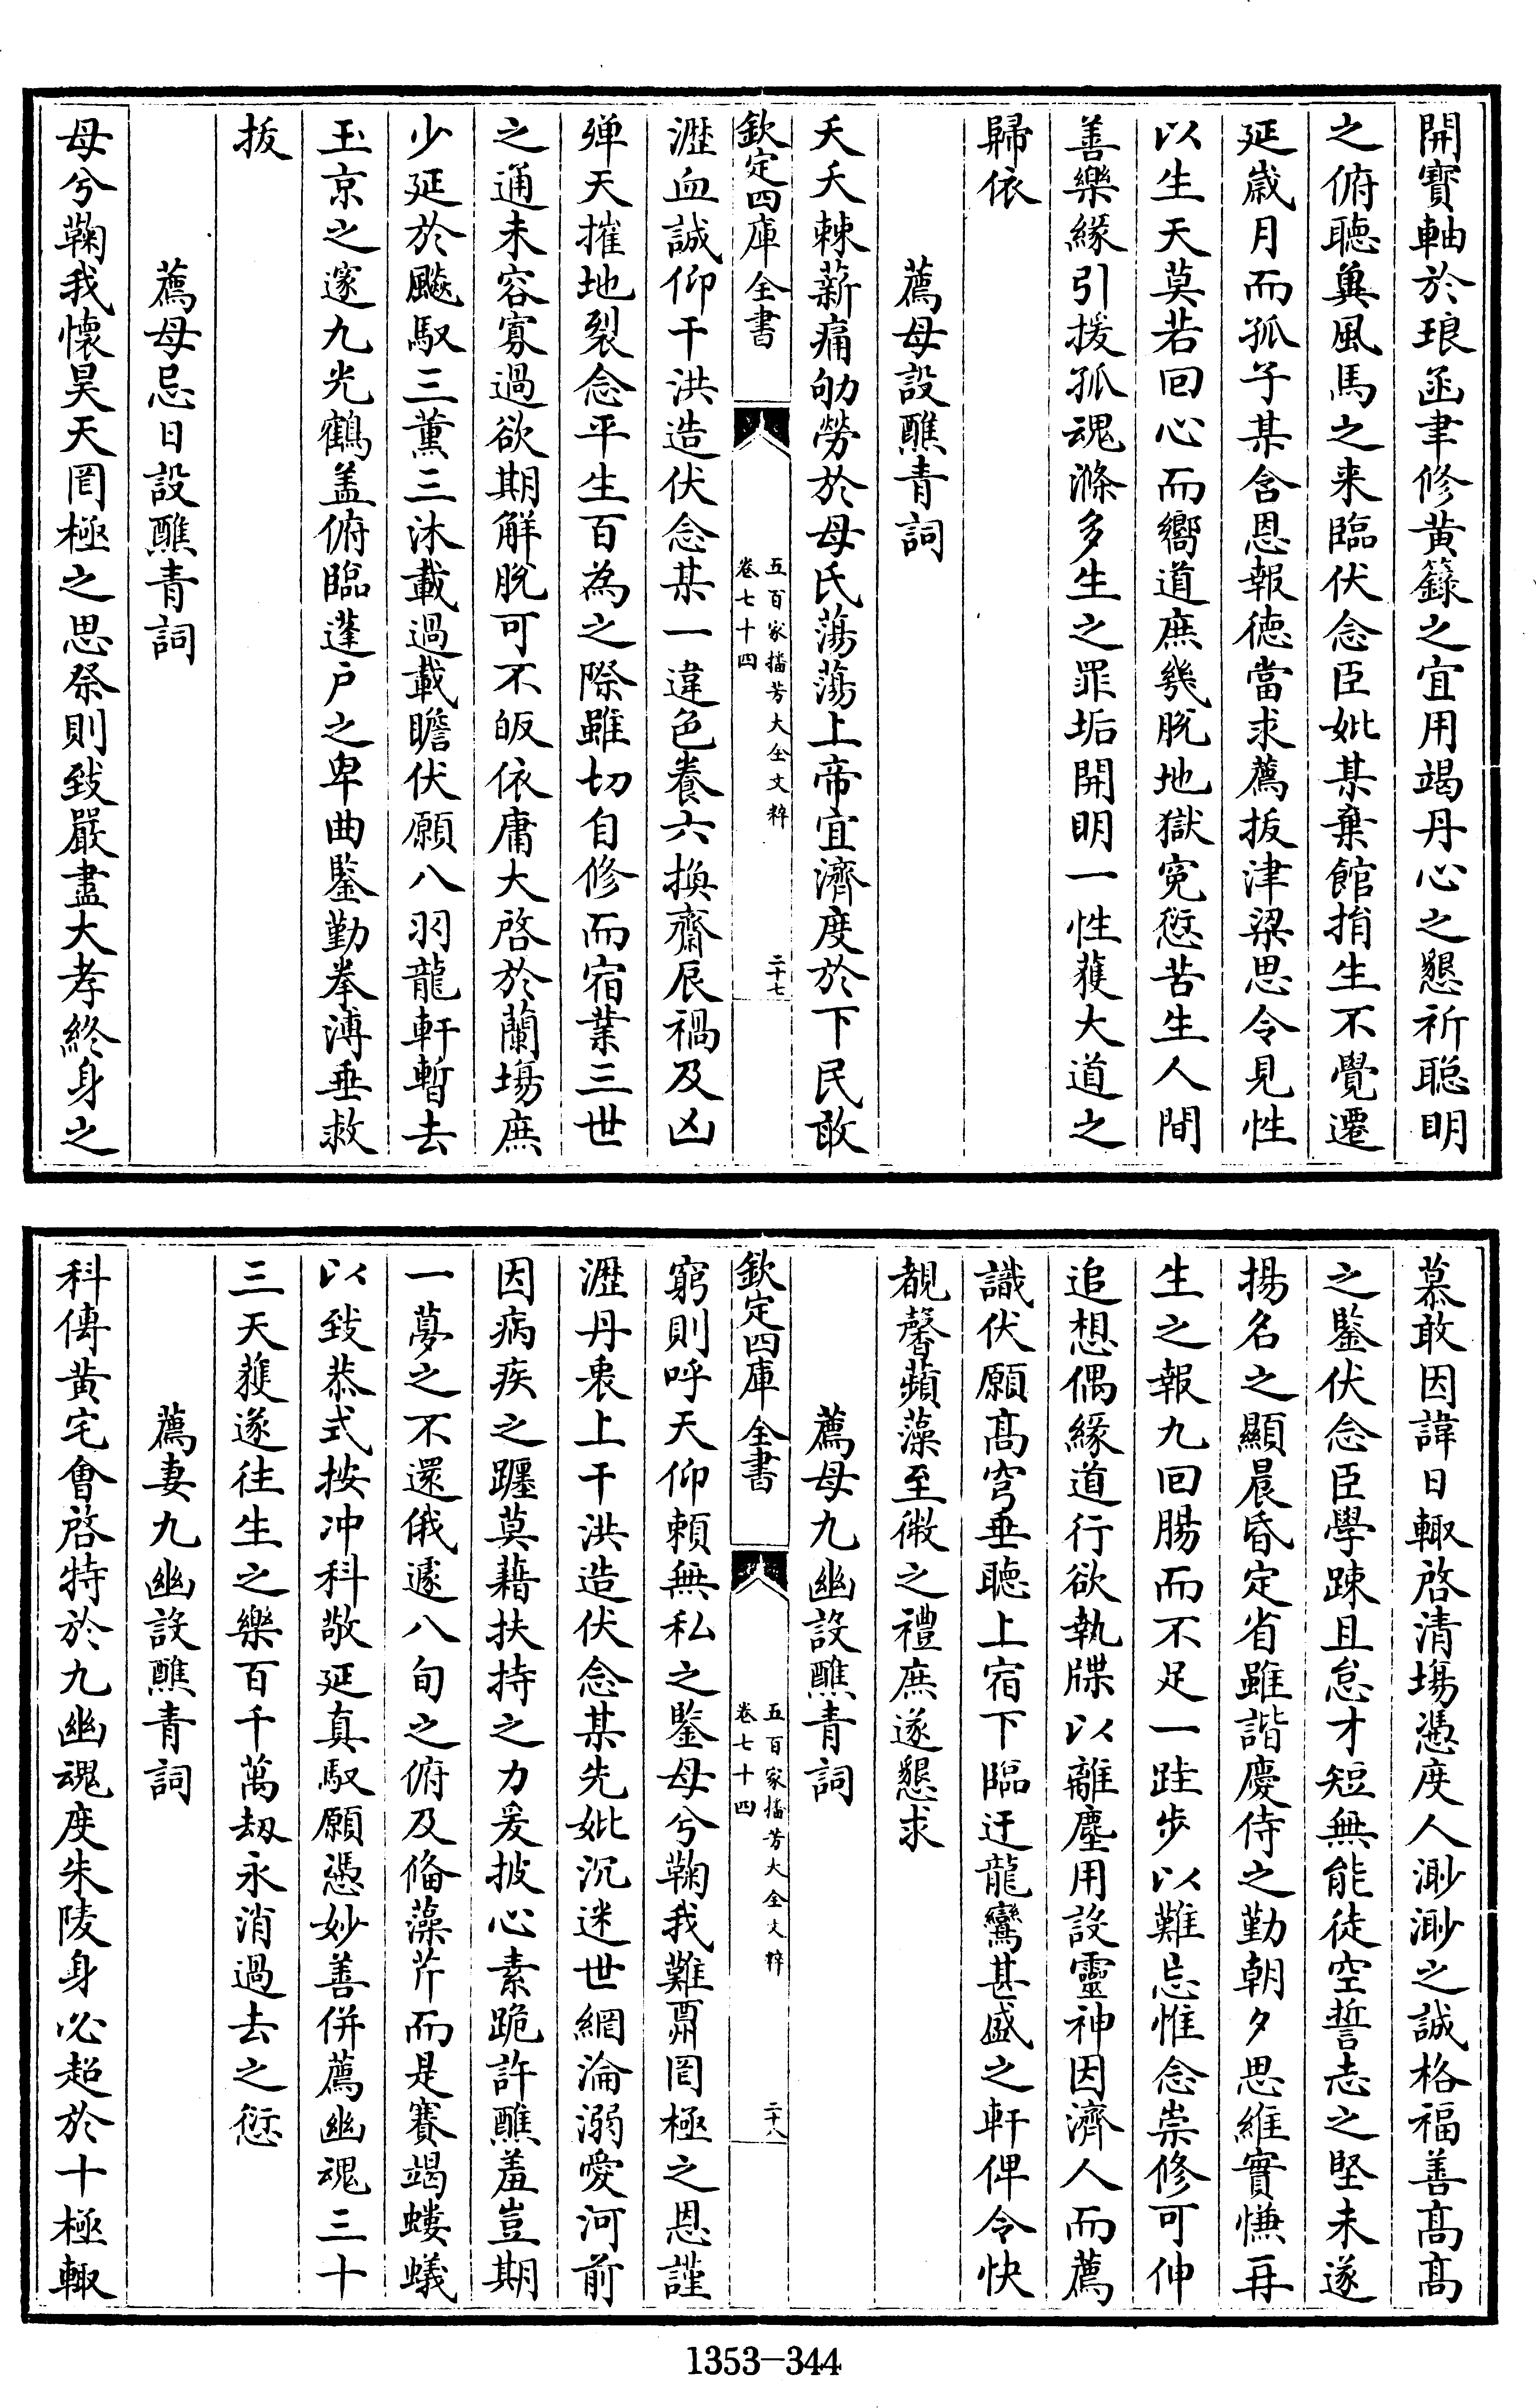 開寶軸於琅函聿修黄籙之宜用竭丹心之懇祈聰明
之俯聽冀風馬之来臨伏念臣妣某棄館捐生不覺遷
延歲月而孤子某含恩報徳當求薦拔津梁思令見性
以生天莫若回心而嚮道庶幾脱地獄寃愆苦生人間
善樂緣引援孤魂滌多生之罪垢開明一性蕿大道之
歸依
薦母設醮青詞
夭夭棘薪痛劬勞於母氏蕩蕩上帝宜濟度於下民敢
欽定四庫全書
五百家播芳大全文粹
卷七十四
二十七
瀝血誠仰干洪造伏念某一違色養六換齋辰禍及凶
殫天摧地裂念平生百為之際雖切自修而宿業三世
之通未容寡過欲期解脱可不皈依庸大啓於蘭塲庶
少延於飈馭三薫三沐載過載瞻伏願八羽龍軒暫去
玉京之邃九光鶴盖俯臨蓬户之卑曲鑒勤拳溥垂救
拔
薦母忌日設醮青詞
母兮鞠我懷昊天罔極之思祭則致嚴盡大孝終身之
慕敢因諱日輙啓清塲憑度人渺渺之誠格福善髙髙
之鑒伏念臣學踈且怠才短無能徒空誓志之堅未遂
揚名之顯晨昏定省雖諧慶侍之勤朝夕思維實慊再
生之報九回腸而不足一跬步以難忘惟念崇修可伸
追想偶緣道行欲執牒以離塵用設靈神因濟人而薦
識伏願髙穹垂聽上宿下臨迂龍鸞甚盛之軒俾令快
覩馨蘋藻至微之禮庶遂懇求
薦母九幽設醮青詞
欽定四庫全書
五百家播芳大全文粹
卷七十四
二十八
窮則呼天仰頼無私之鑒母兮鞠我難酬罔極之恩謹
瀝丹衷上干洪造伏念某先妣沉迷世網淪溺愛河前
因病疾之躔莫藉扶持之力爰披心素跪許醮羞豈期
一夢之不還俄遽八旬之俯及偹藻芹而是賽竭螻蟻
以致恭式按冲科敬延真馭願憑妙善併薦幽魂三十
三天蕿遂往生之樂百千萬刼永消過去之愆
薦妻九幽設醮青詞
科傳黄宅會啓特於九幽魂度朱陵身必超於十極輙
1353-344